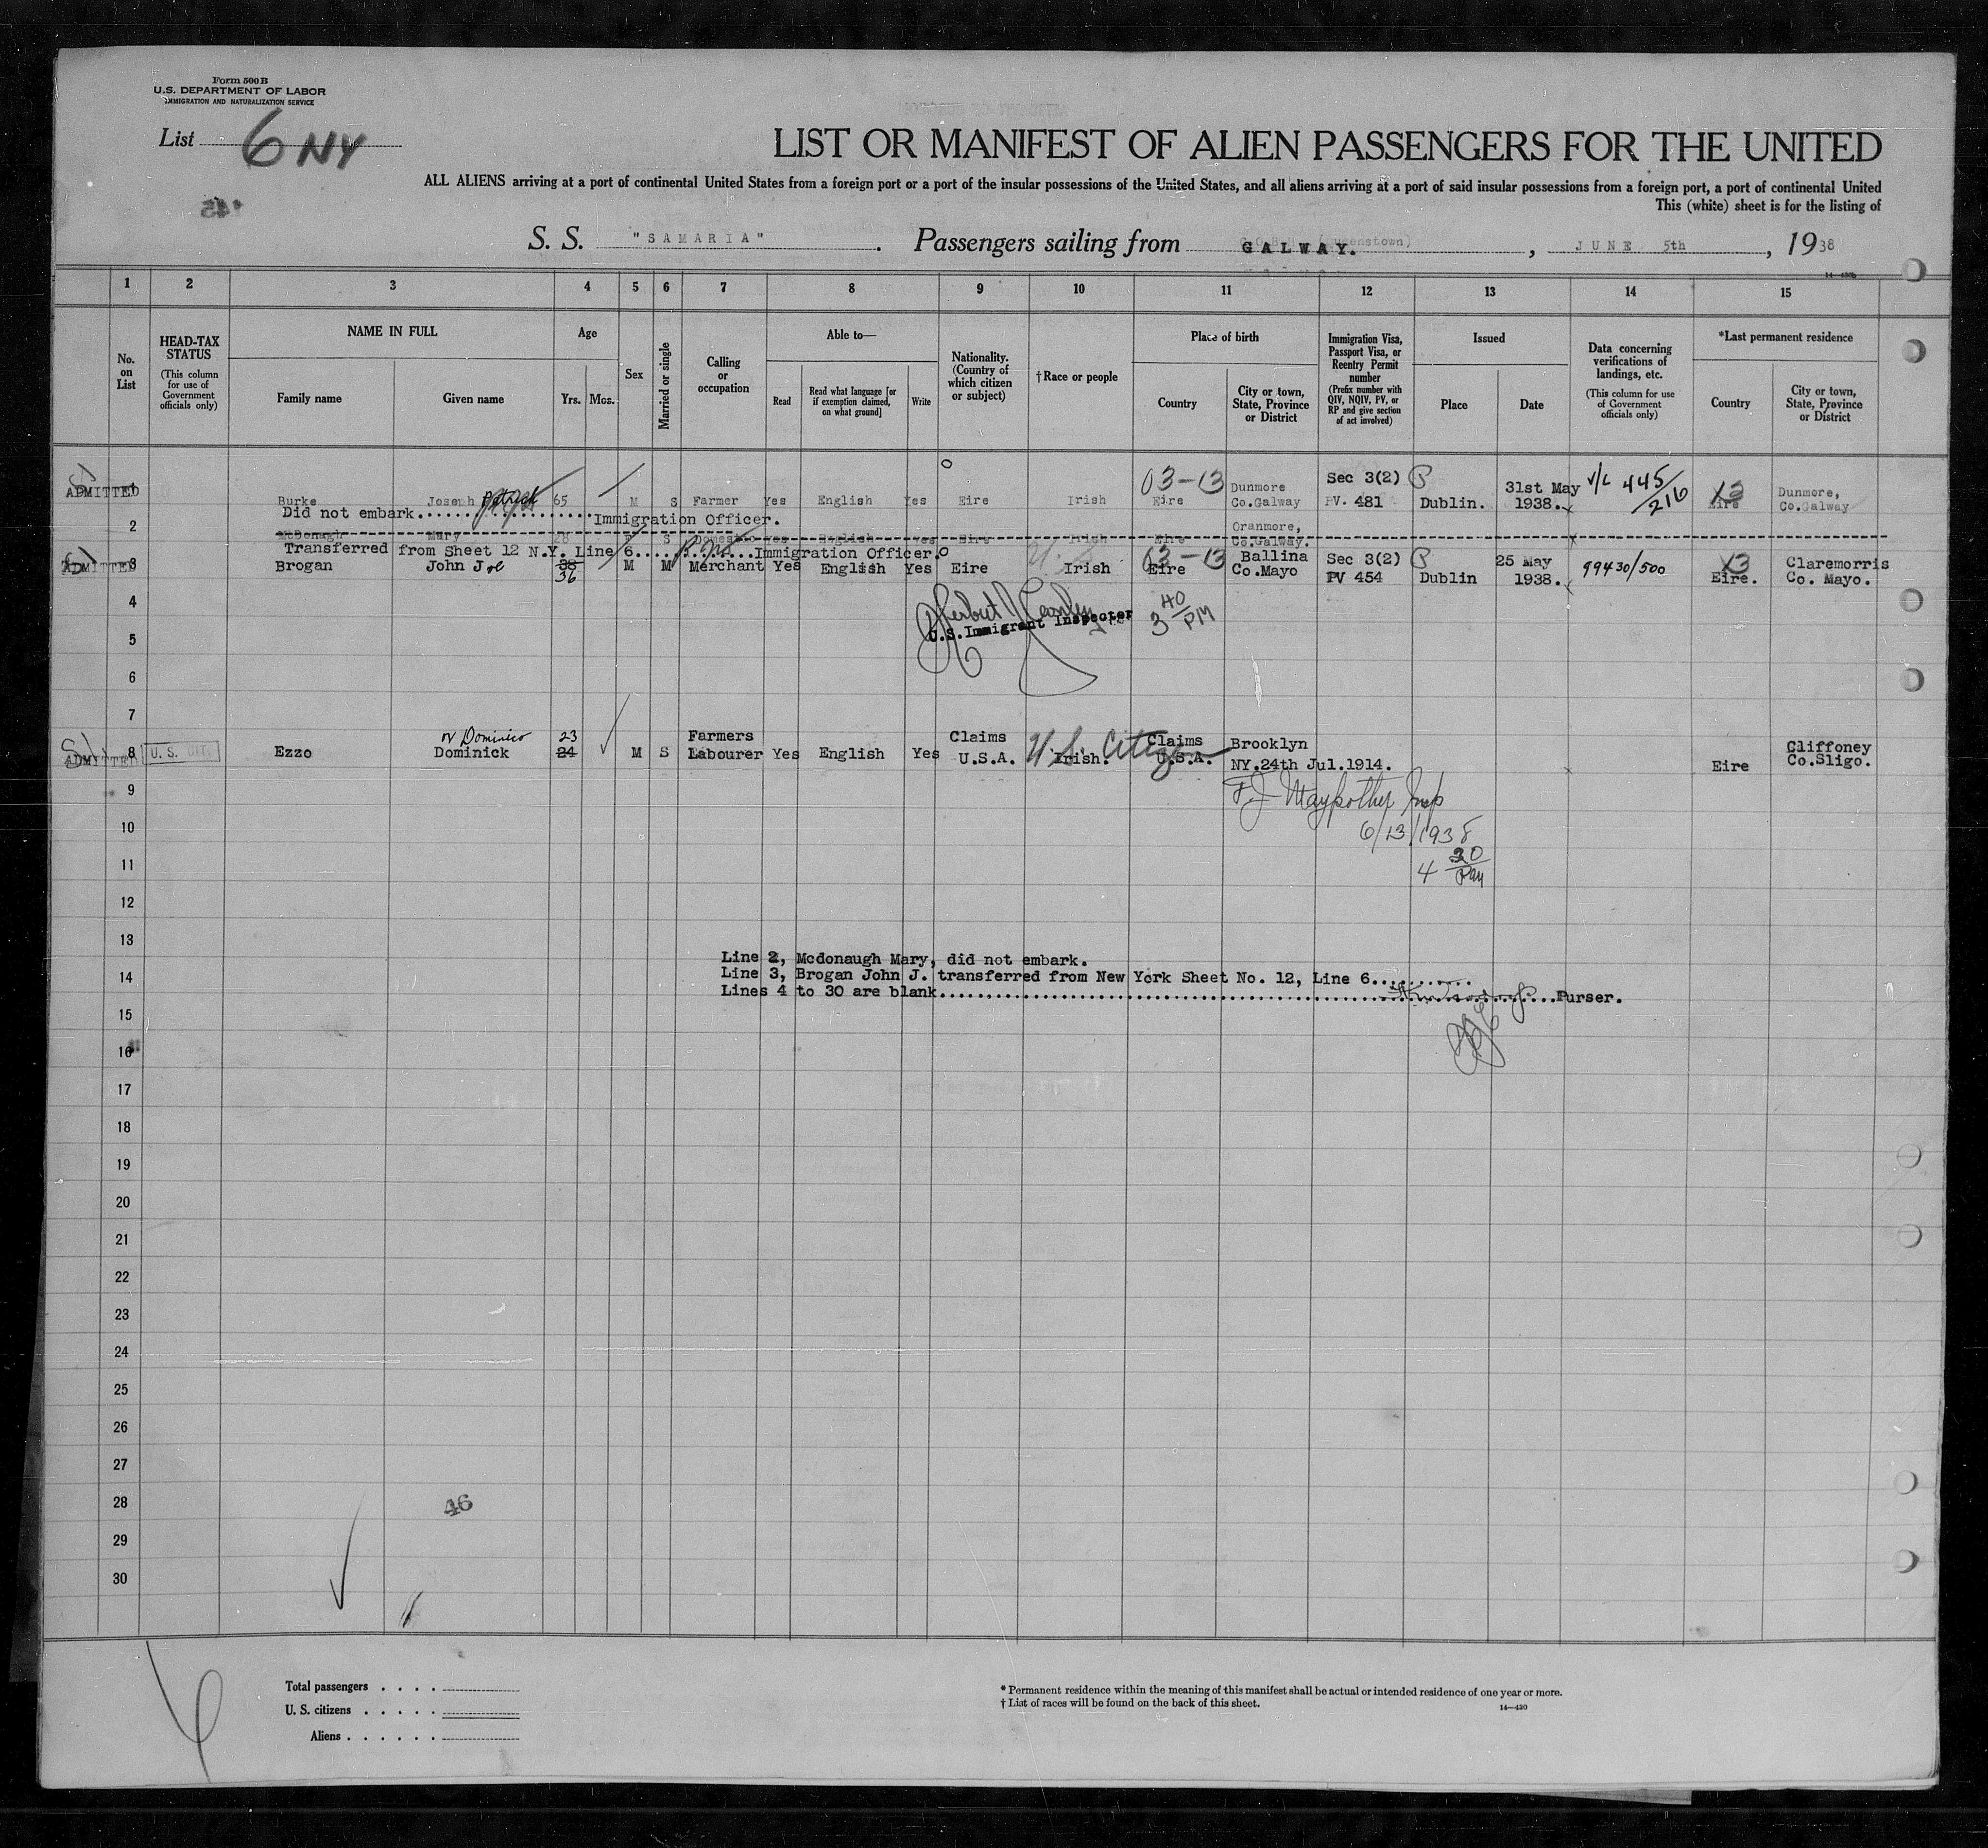 Form 500 B
U.S. DEPARTMENT OF LABOR
IMMIGRATION AND NATURALIZATION SERVICE
List 6 NY
LIST OR MANIFEST OF ALIEN PASSENGERS FOR THE UNITED
ALL ALIENS arriving at a port of continental United States from a foreign port or a port of the insular possessions of the United States, and all aliens arriving at a port of said insular possessions from a foreign port, a port of continental United
This (white) sheet is for the listing of
S. S. "SAMARIA". Passengers sailing from GALWAY., JUNE 5th, 1938
14-430b
1 2 3 4 5 6 7 8 9 10 11 12 13 14 15
No. on List
HEAD-TAX STATUS (This column for use of Government officials only)
NAME IN FULL
Family name Given name
Age
Yrs. Mos.
Sex
Married or single
Calling or occupation
Able to—
Read
Read what language [or if exemption claimed, on what ground]
Write
Nationality. (Country of which citizen or subject)
†Race or people
Place of birth
Country
City or town, State, Province or District
Immigration Visa, Passport Visa, or Reentry Permit number (Prefix number with QIV, NQIV, PV, or RP and give section of act involved)
Issued
Place Date
Data concerning verifications of landings, etc. (This column for use of Government officials only)
*Last permanent residence
Country
City or town, State, Province or District
ADMITTED 1 Burke Joseph Patrick 65 M S Farmer Yes English Yes Eire Irish 03-13 Eire Dunmore Co.Galway Sec 3(2) PV. 481 Dublin. 31st May 1938. V/L 445/216 Eire Dunmore, Co.Galway
Did not embark..................Immigration Officer.
2 McDonagh Mary 28 F S Domestic Yes English Yes Eire Irish Eire Oranmore, Co.Galway.
Transferred from Sheet 12 N.Y. Line 6..........Immigration Officer.
ADMITTED 3 Brogan John Joe 38 36 M M Merchant Yes English Yes Eire Irish 03-13 Eire Ballina Co.Mayo Sec 3(2) PV 454 Dublin 25 May 1938. 99430/500 Eire. Claremorris Co. Mayo.
4
U.S.Immigrant Inspector 3 40 PM
5
6
7
ADMITTED 8 U. S. CIT. Ezzo Dominick or Dominico 23 24 M S Farmers Labourer Yes English Yes Claims U.S.A. Irish. U.S. Citizen Claims U.S.A. Brooklyn NY.24th Jul.1914. Eire Cliffoney Co.Sligo.
9
F J Maypother Insp
10
6/13/1938
11
4 30 PM
12
13
Line 2, Mcdonaugh Mary, did not embark.
14
Line 3, Brogan John J. transferred from New York Sheet No. 12, Line 6...........
Lines 4 to 30 are blank............Purser.
15
16
17
18
19
20
21
22
23
24
25
26
27
28
46
29
30
Total passengers
U. S. citizens
Aliens
* Permanent residence within the meaning of this manifest shall be actual or intended residence of one year or more.
† List of races will be found on the back of this sheet.
14-430